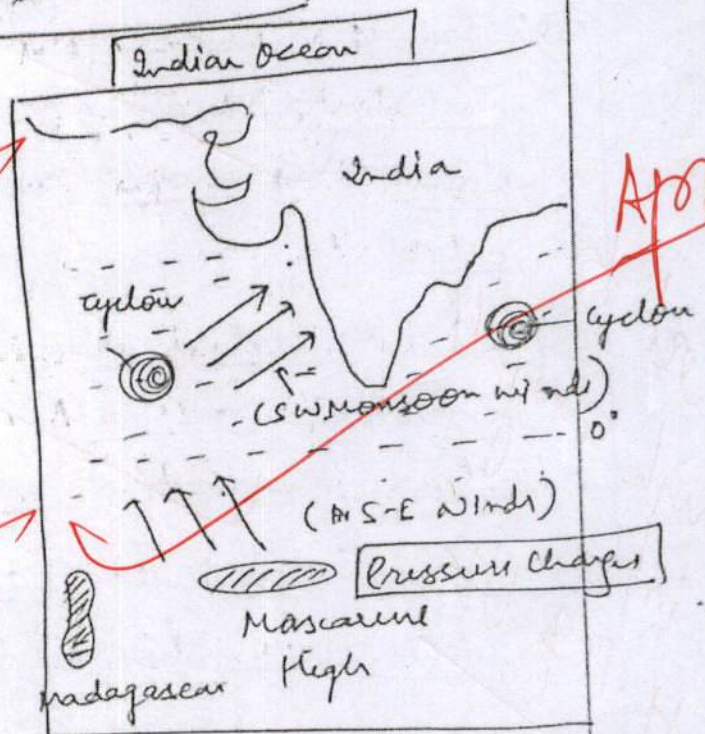 Indian Ocean
India
cyclon
cyclon
(SW Monsoon winds)
0°
(S-E Winds)
Pressure Changes
Mascarene
High
Madagascar